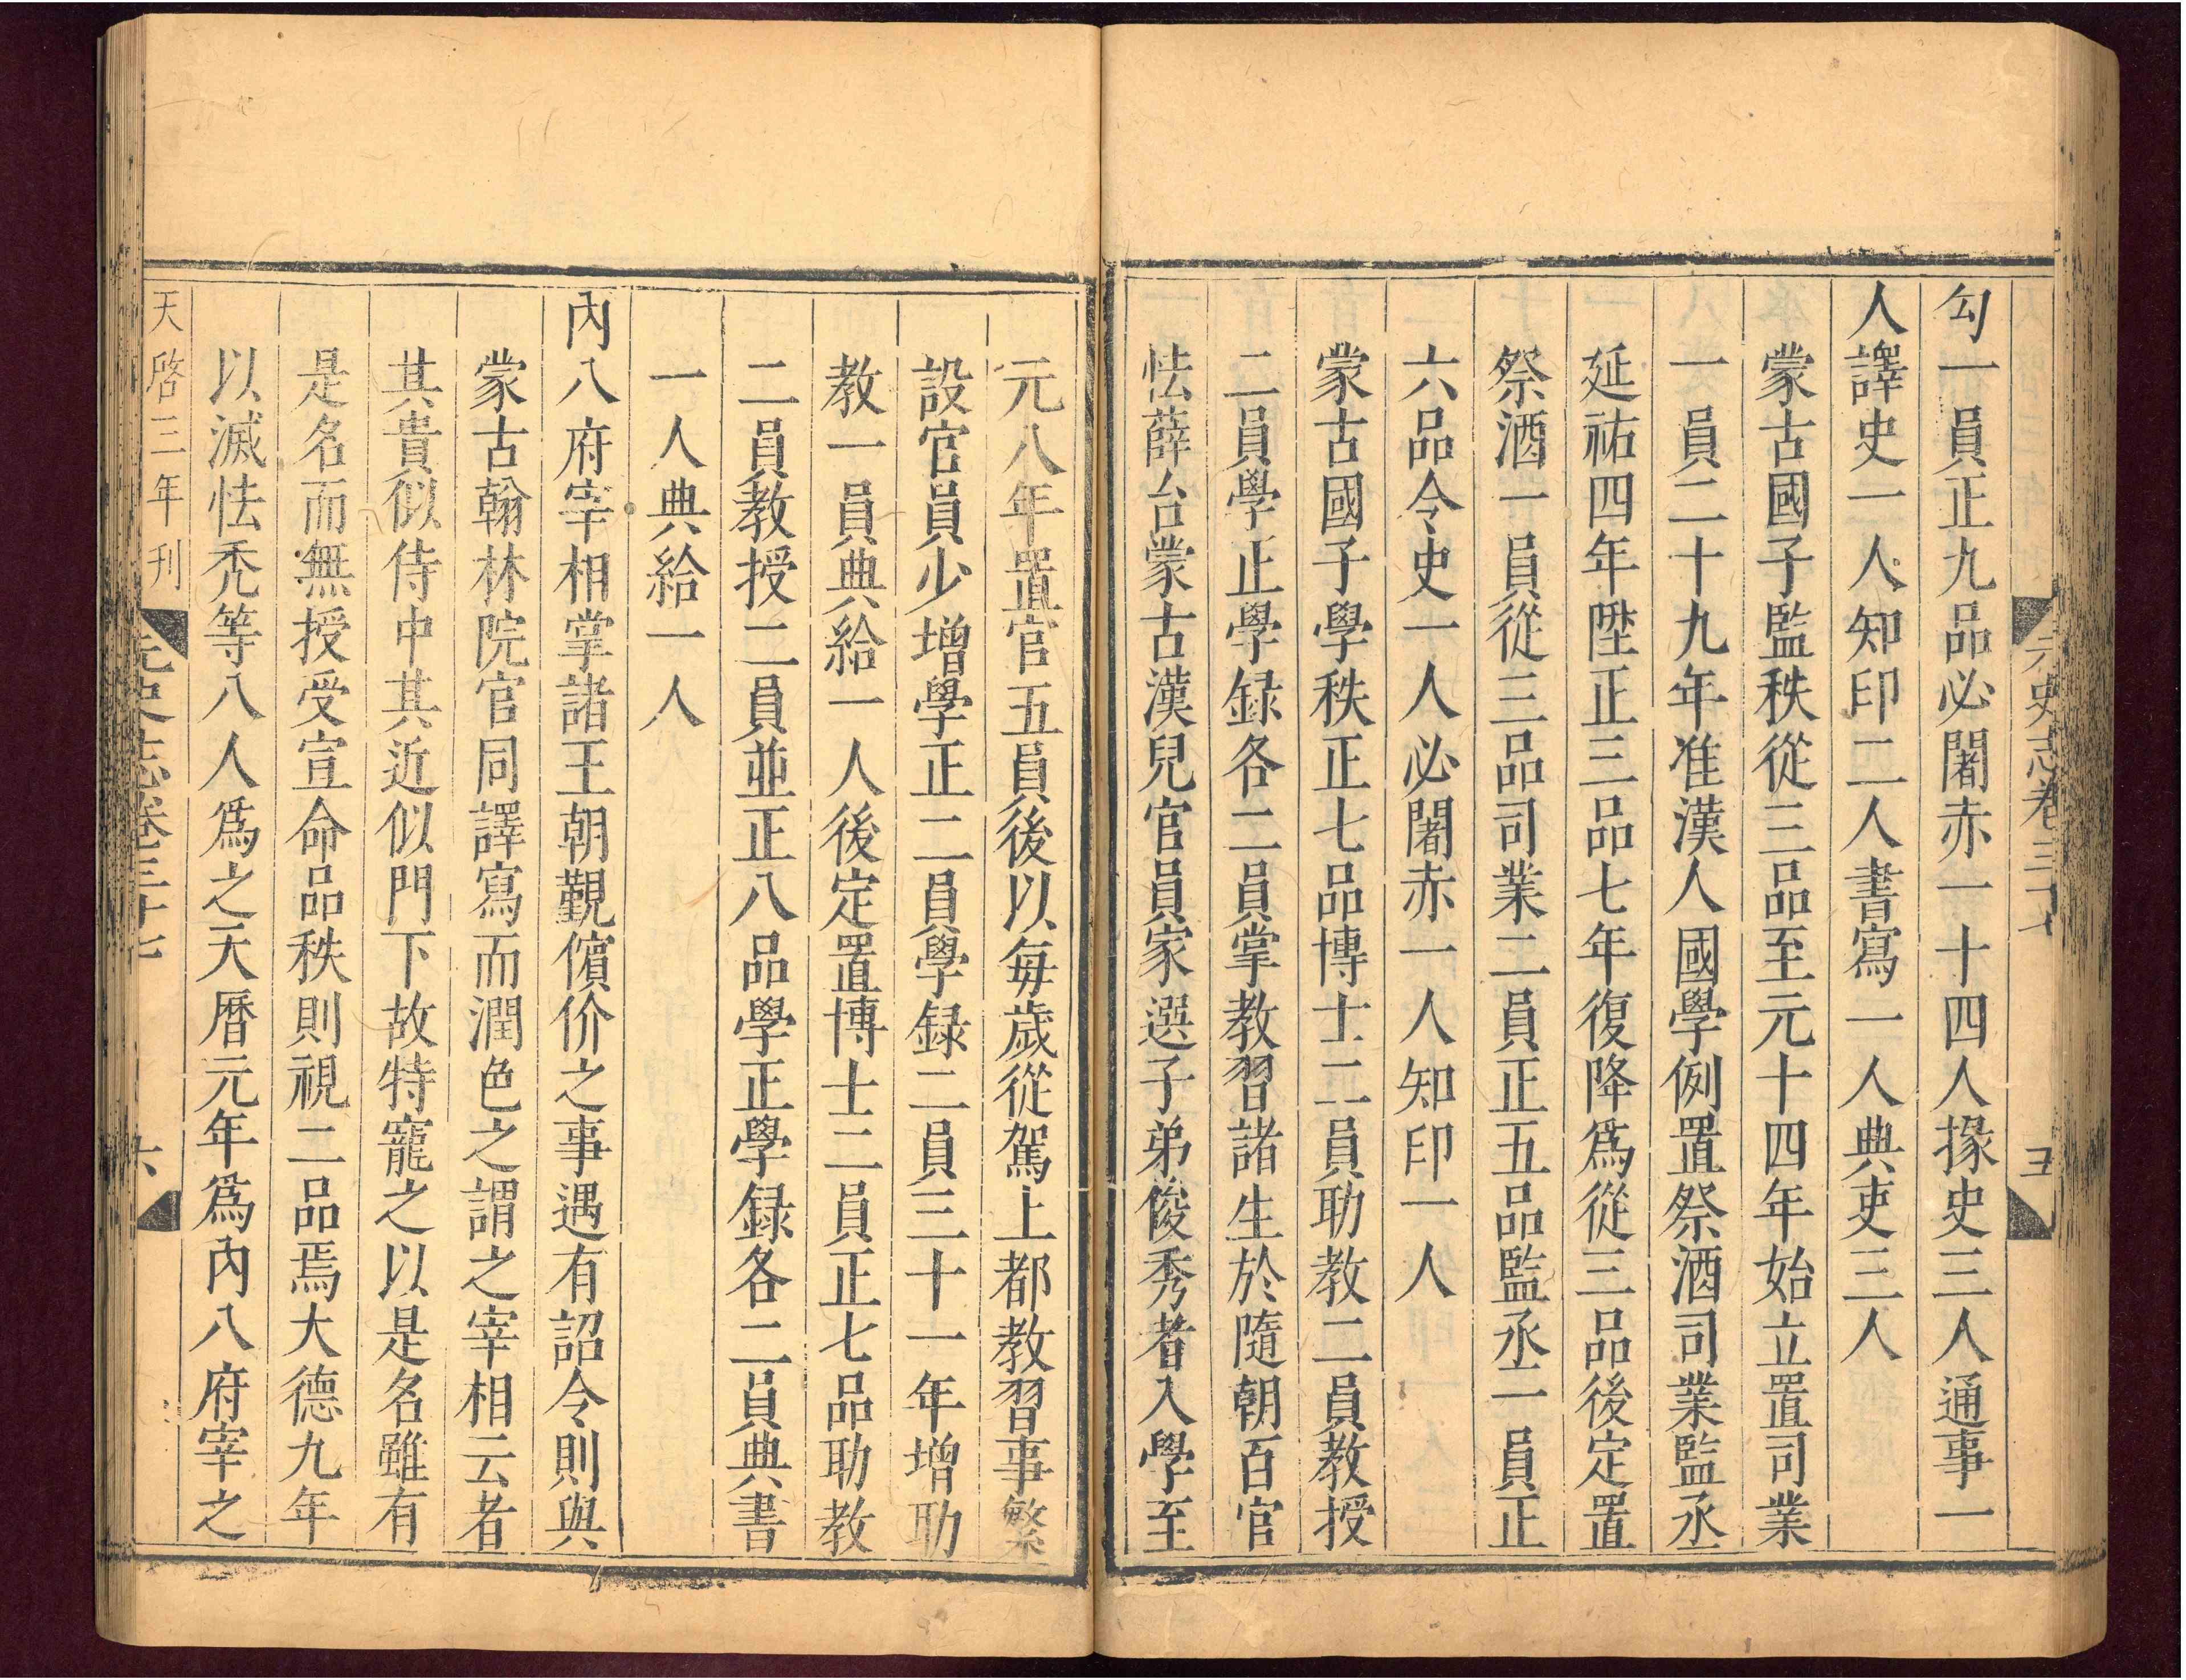 元史志卷三十七 五
勾一員正九品必闍赤一十四人掾史三人通事一
人譯史一人知印二人書寫一人典吏三人
蒙古國子監秩從三品至元十四年始立置司業
一員二十九年准漢人國學例置祭酒司業監丞
延祐四年陞正三品七年復降爲從三品後定置
祭酒一員從三品司業二員正五品監丞一員正
六品令史一人必闍赤一人知印一人
蒙古國子學秩正七品博士二員助教二員教授
二員學正學録各二員掌教習諸生於隨朝百官
怯薛台蒙古漢兒官員家選子弟俊秀者入學至
元八年置官五員後以每歲從駕上都教習事繁
設官員少增學正二員學録二員三十一年增助
教一員典給一人後定置博士二員正七品助教
二員教授二員並正八品學正學録各二員典書
一人典給一人
內八府宰相掌諸王朝覲儐价之事遇有詔令則與
蒙古翰林院官同譯寫而潤色之謂之宰相云者
其貴似侍中其近似門下故特寵之以是名雖有
是名而無授受宣命品秩則視二品焉大德九年
以滅怯禿等八人爲之天曆元年爲內八府宰之
天啓三年刊 元史志卷三十七 六